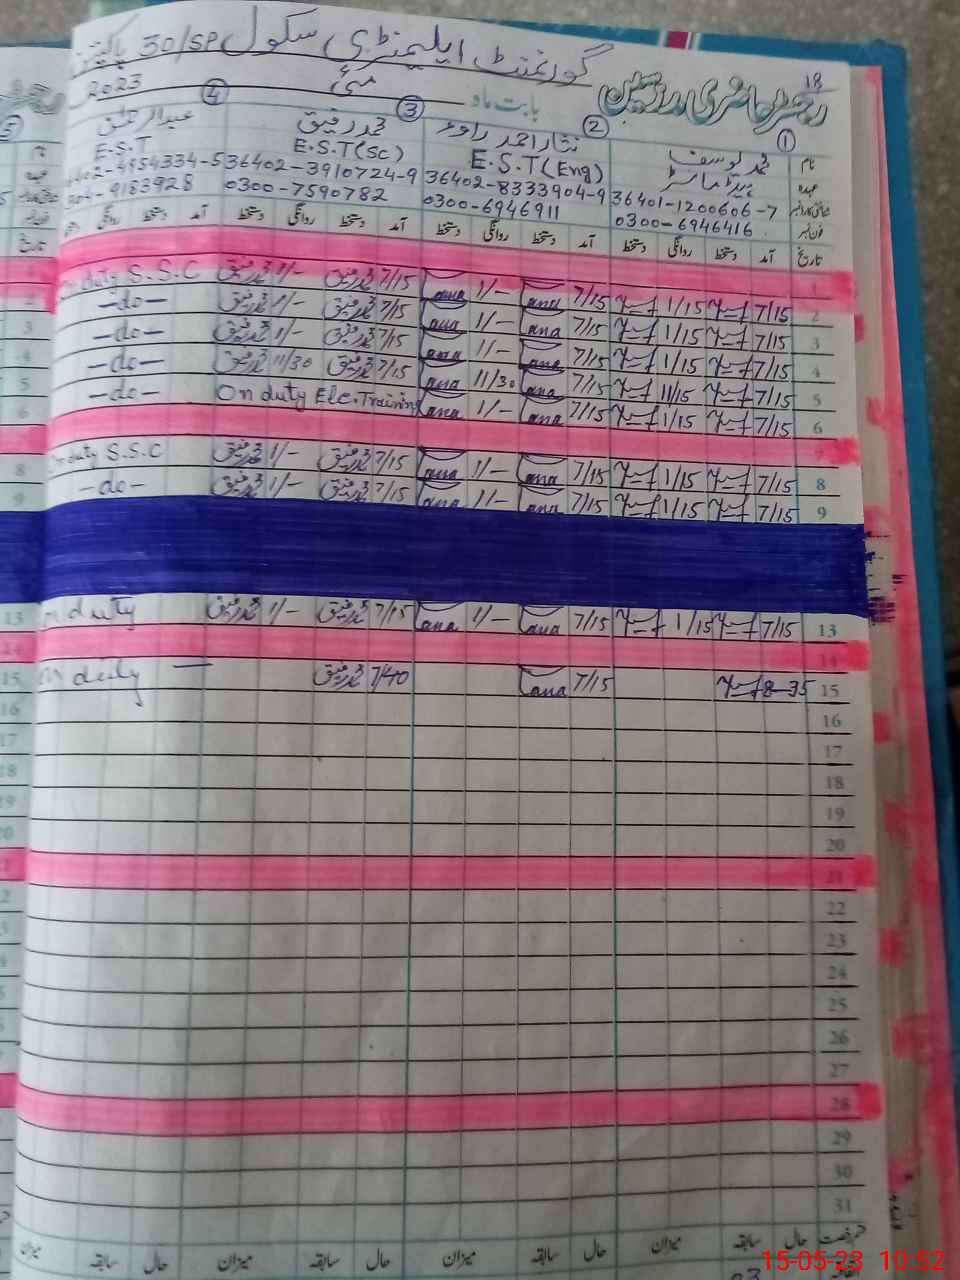 18
گورنمنٹ ایلیمنٹری سکول 30/SP پاکپتن
رجسٹر حاضری مدرسین
بابت ماہ مئی 2023
① ② ③ ④
نام محمد یوسف نثار احمد محمد رفیق عبدالرحمٰن
عہدہ ہیڈ ماسٹر E.S.T (Eng) E.S.T (Sc) E.S.T
36401-1200606-7 36402-8333904-9 36402-3910724-9 4954334-5
فون نمبر 0300-6946416 0300-6946911 0300-7590782 9183928
تاریخ آمد دستخط روانگی دستخط آمد دستخط روانگی دستخط آمد دستخط روانگی دستخط آمد دستخط روانگی
1
2 7/15 1/15 7/15 1/- 7/15 محمد رفیق 1/- محمد رفیق On duty S.S.C
3 7/15 1/15 7/15 1/- 7/15 محمد رفیق 1/- محمد رفیق -do-
4 7/15 1/15 7/15 1/- 7/15 محمد رفیق 1/- محمد رفیق -do-
5 7/15 11/15 7/15 11/30 7/15 محمد رفیق 11/30 محمد رفیق -do-
6 7/15 1/15 7/15 1/- On duty Ele. Training -do-
7
8 7/15 1/15 7/15 1/- 7/15 محمد رفیق 1/- محمد رفیق On duty S.S.C
9 7/15 1/15 7/15 1/- 7/15 محمد رفیق 1/- محمد رفیق -do-
13 7/15 1/15 7/15 1/- 7/15 محمد رفیق 1/- محمد رفیق On duty
14
15 8-35 7/15 7/40 محمد رفیق On duty
16
17
18
19
20
21
22
23
24
25
26
27
28
29
30
31
حال سابقہ میزان حال سابقہ میزان حال سابقہ میزان حال سابقہ میزان
15-05-23 10:52